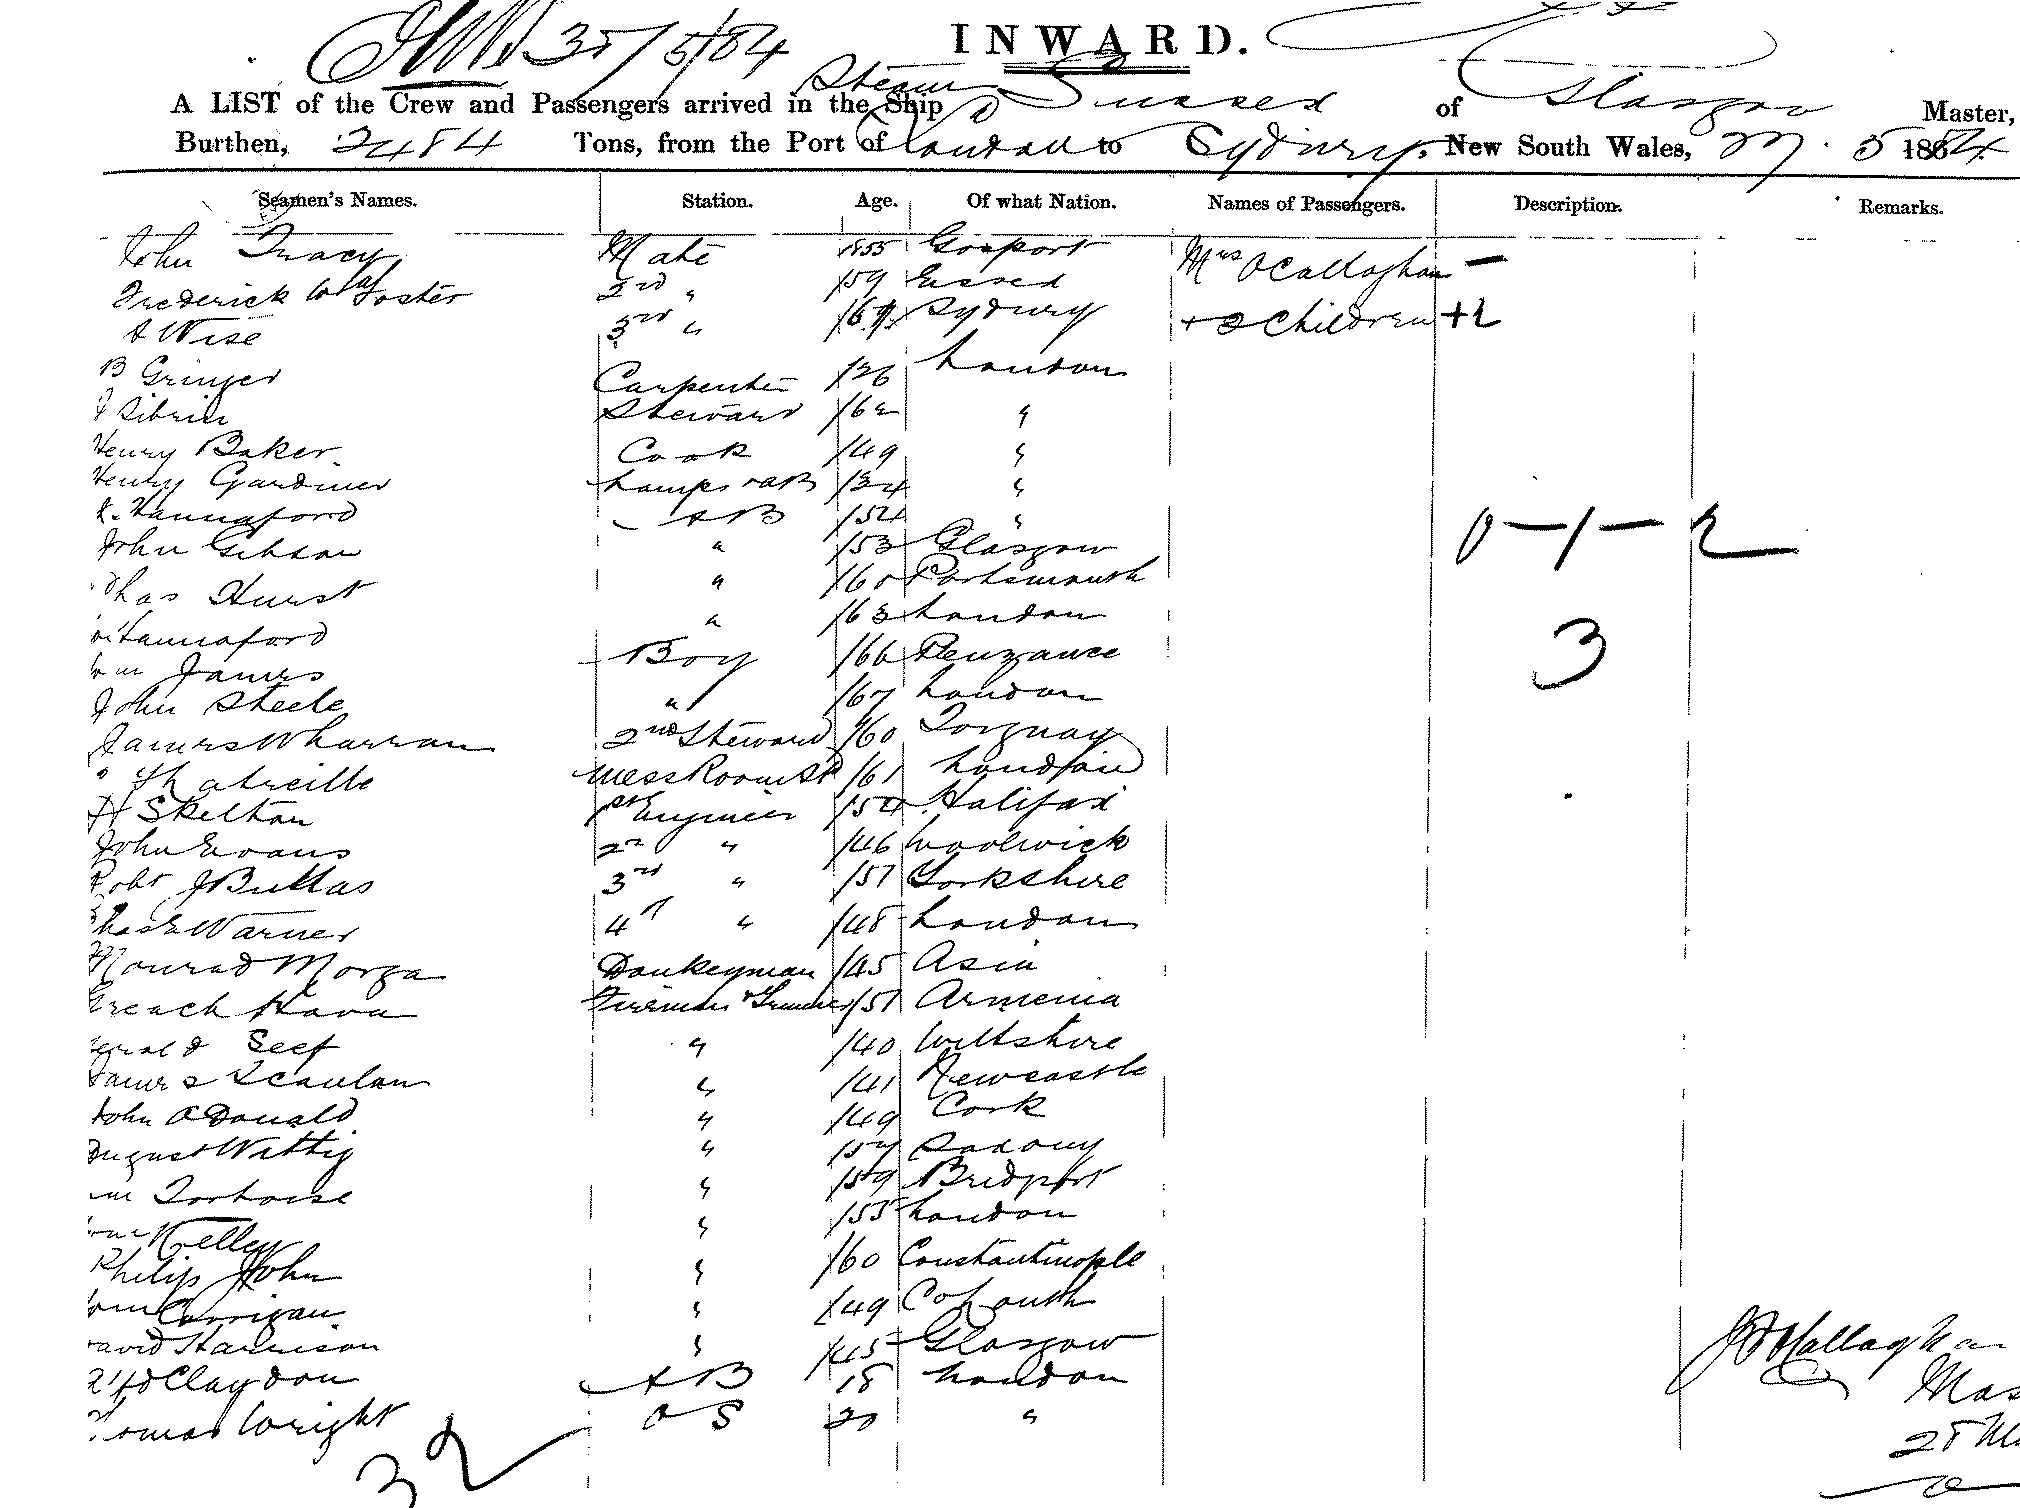 35/5/84
INWARD.
A LIST of the Crew and Passengers arrived in the Ship Steam Sussex of Glasgow Master,
Burthen, 2484 Tons, from the Port of London to Sydney, New South Wales, 5 1884
Seamen's Names. Station. Age. Of what Nation. Names of Passengers. Description. Remarks.
John Tracy Mate 1855 Gosport Mrs OCallaghan —
Frederick Foster 2nd " /59 Essex
A Wise 3rd " Sydney + 3 Children + 2
B Gringer Carpenter /26 London
Steward /62 "
Henry Baker Cook /49 "
Henry Gardiner Lamps & AB /34 "
Hannaford AB /54 " 0—1—2
John Gibson " /53 Glasgow
Chas Hurst " /60 Portsmouth
Hannaford " /63 London 3
Wm James Boy /66 Penzance
John Steele " /67 London
James Wharran 2nd Steward /60 Torquay
Mess Room St /61 London
H Skelton 1st Engineer /54 Halifax
John Evans 2nd " /46 Woolwich
Robt J Buttas 3rd " /57 Yorkshire
Chas E Warner 4th " /48 London
Monrad Morga Donkeyman /45 Asia
Fireman & Trimmer /51 Armenia
Seef " /40 Wiltshire
James Scanlan " /41 Newcastle
John ODonald " /49 Cork
August Wittig " /57 Saxony
Wm Tortoise " /59 Bridport
Kelley " /55 London
Philip John " /60 Constantinople
Corrigan " /49
David Harrison " /45 Glasgow
Claydon AB 18 London
Thomas Wright OS 20 "
32
J OCallaghan
Mas
28 Ma